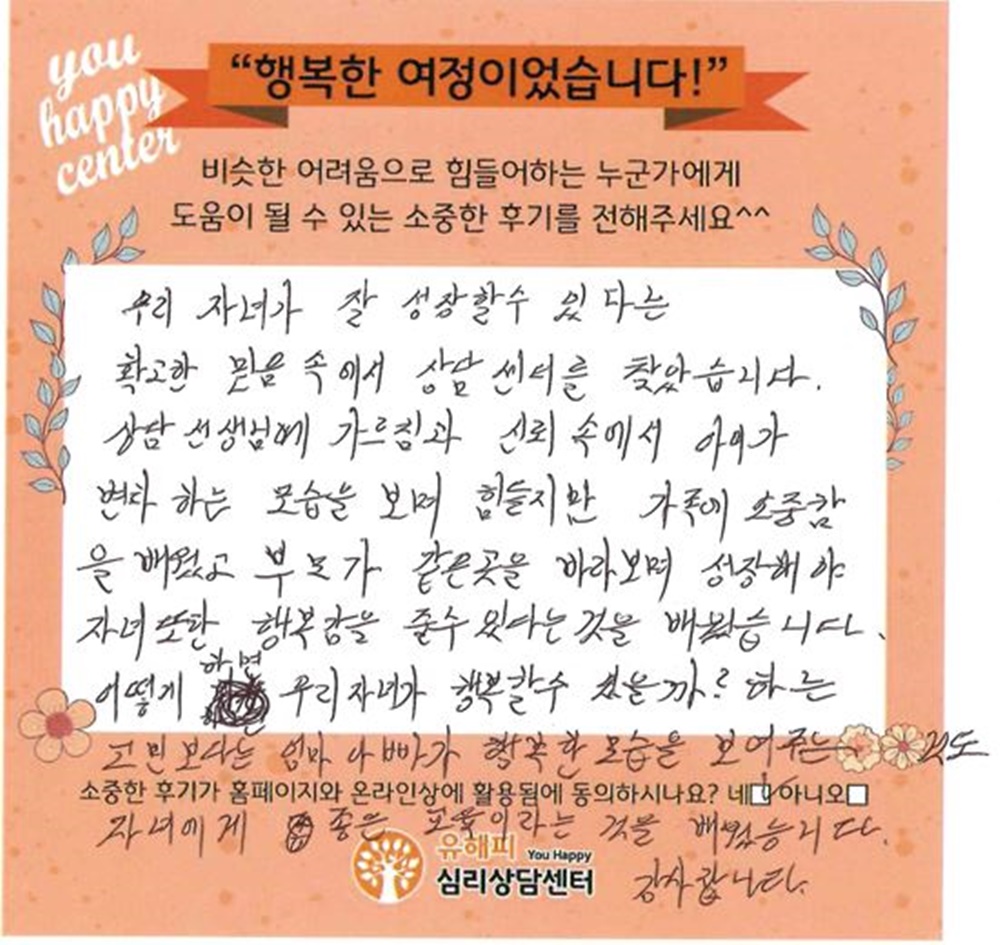 you
happy
center
“행복한 여정이었습니다!”
비슷한 어려움으로 힘들어하는 누군가에게
도움이 될 수 있는 소중한 후기를 전해주세요^^
우리 자녀가 잘 성장할수 있다는
확고한 믿음 속에서 상담센터를 찾았습니다.
상담선생님에 가르침과 신뢰속에서 아이가
변화 하는 모습을 보며 힘들지만 가족에 소중함
을 배웠고 부모가 같은곳을 바라보며 성장해야
자녀또한 행복감을 줄수있다는것을 배웠습니다.
어떻게 하면 우리자녀가 행복할수 있을까? 하는
고민보다는 엄마 아빠가 행복한모습을 보여주는 것도
소중한 후기가 홈페이지와 온라인상에 활용됨에 동의하시나요? 네□ 아니오□
자녀에게 좋은 교육이라는 것을 배웠습니다.
유해피 You Happy
심리상담센터 감사합니다.